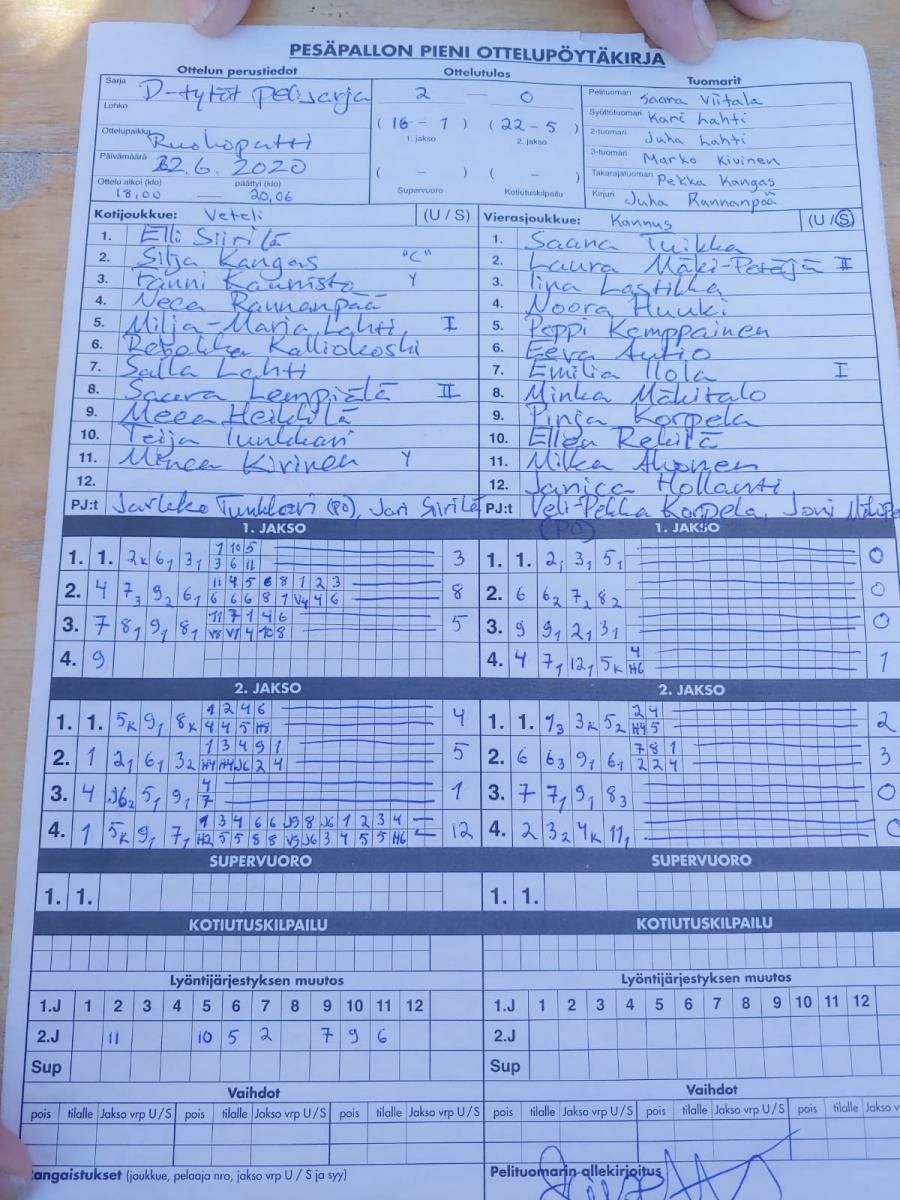 PESÄPALLON PIENI OTTELUPÖYTÄKIRJA
Ottelun perustiedot
Sarja D-tytöt pelisarja
Lohko
Ottelupaikka
Päivämäärä 22.6.2020
Ottelu alkoi (klo) päättyi (klo)
18,00 — 20,06
Ottelutulos
2 — 0
(16 - 1) (22 - 5)
1. jakso 2. jakso
( - ) ( - )
Supervuoro Kotiutuskilpailu
Tuomarit
Pelituomari Saara Viitala
Syöttötuomari Kari Lahti
2-tuomari Juha Lahti
3-tuomari Marko Kivinen
Takarajatuomari Pekka Kangas
Kirjuri Juha Rannanpää
Kotijoukkue: Veteli (U / S)
1. Elli Siirilä
2. Silja Kangas "C"
3. Fanni Kaunisto Y
4. Neea Rannanpää
5. Milja-Maria Lahti I
6. Rebekka Kalliokoski
7. Salla Lahti
8. Saara Lempiälä II
9. Meea Heikkilä
10. Teija Tunkkari
11. Minea Kivinen Y
12.
PJ:t Jarkko Tunkkari (PJ), Jari Siirilä
Vierasjoukkue: Kannus (U / S)
1. Saana Tuikka
2. Laura Mäki-Petäjä II
3. Iina Lastikka
4. Noora Huuki
5. Peppi Kemppainen
6. Eeva Autio
7. Emilia Ilola I
8. Minka Mäkitalo
9. Pinja Korpela
10. Ellen Rekilä
11. Milka Ahonen
12. Janica Hollanti
PJ:t Veli-Pekka Korpela, Joni
1. JAKSO
1. 1. 2K 6₁ 3₁ 3
2. 4 7₃ 9₂ 6₁ 8
3. 7 8₁ 9₁ 8₁ 5
4. 9
1. JAKSO
1. 1. 2₁ 3₁ 5₁ 0
2. 6 6₂ 7₂ 8₂ 0
3. 9 9₁ 2₁ 3₁ 0
4. 4 7₁ 12₁ 5K 4 H6 1
2. JAKSO
1. 1. 5K 9₁ 8K 4
2. 1 2₁ 6₁ 3₂ 5
3. 4 J6₂ 5₁ 9₁ 4 7 1
4. 1 5K 9₁ 7₁ 12
2. JAKSO
1. 1. 1₃ 3K 5₂ 2 4 H4 5 2
2. 6 6₃ 9₁ 6₁ 7 8 1 2 2 4 3
3. 7 7₁ 9₁ 8₃ 0
4. 2 3₂ 4K 11₁ 0
SUPERVUORO
1. 1.
SUPERVUORO
1. 1.
KOTIUTUSKILPAILU
KOTIUTUSKILPAILU
Lyöntijärjestyksen muutos
1.J 1 2 3 4 5 6 7 8 9 10 11 12
2.J 11 10 5 2 7 9 6
Sup
Lyöntijärjestyksen muutos
1.J 1 2 3 4 5 6 7 8 9 10 11 12
2.J
Sup
Vaihdot
pois tilalle Jakso vrp U / S pois tilalle Jakso vrp U / S pois tilalle
Vaihdot
pois tilalle Jakso vrp U / S pois tilalle Jakso vrp U / S pois tilalle Jakso v
Rangaistukset (joukkue, pelaaja nro, jakso vrp U / S ja syy)
Pelituomarin allekirjoitus